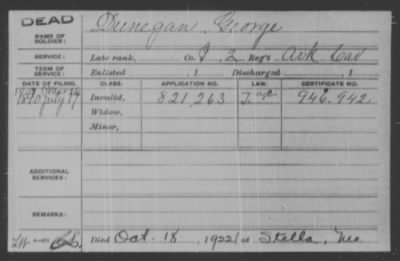 DEAD
NAME OF SOLDIER: Dunegan George
SERVICE: Late rank, Co. I, 2 Reg't Ark Cav
TERM OF SERVICE: Enlisted , 1 Discharged , 1
DATE OF FILING. CLASS. APPLICATION NO. LAW. CERTIFICATE NO.
1890 July 17 Invalid, 821,263 946,942
Widow,
Minor,
ADDITIONAL SERVICES:
REMARKS:
Died Oct. 18, 1922, at Stella, Mo.